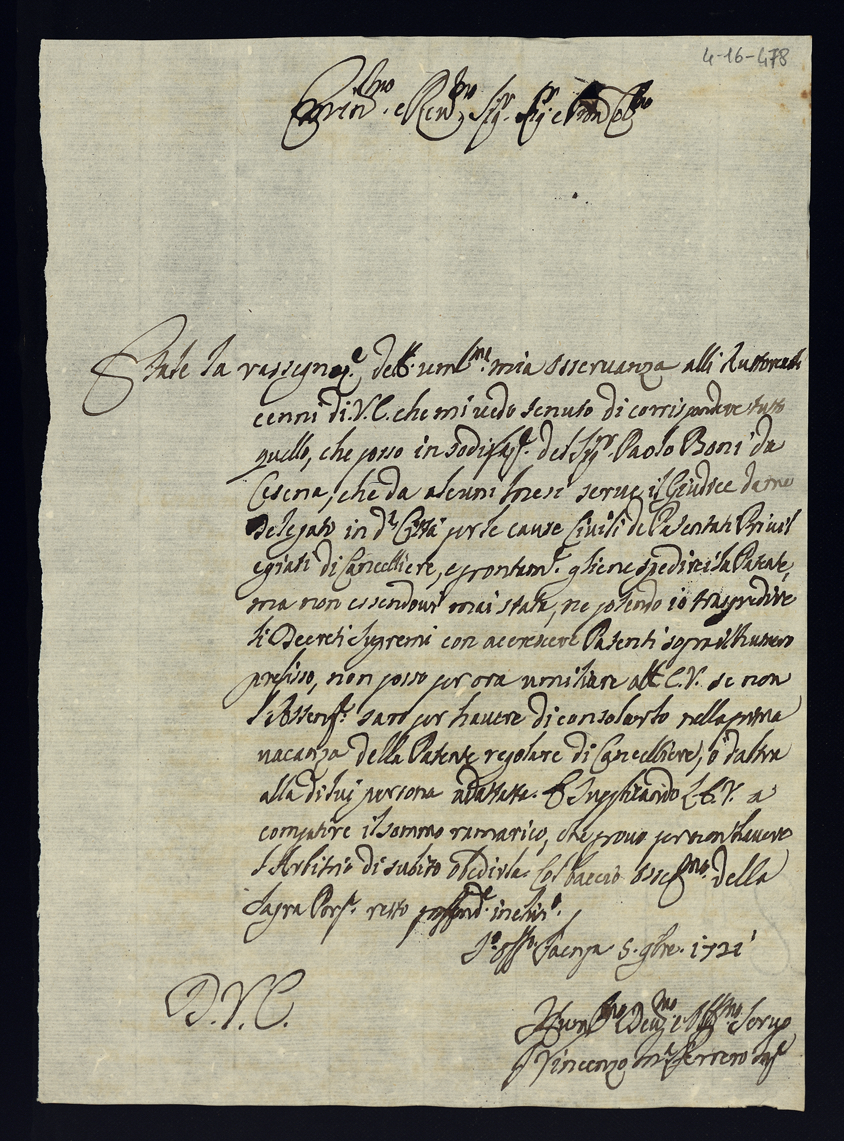 4-16-478
Emin.mo e Rev.mo Sig.r Sig.r e Pron Col.mo
Tale la rassegnaz.e dell' uml.ma mia osservanza alli
cenni di V.E. che mi vedo tenuto di corrispondere tutto
quello, che posso in sodisfaz.e del Sig.r Paolo Boni da
Cesena, che da alcuni mesi serve il Giudice da me
delegato in d.a Città per le cause Civili de Patentati Privil
egiati di Cancelliere, e prontam.e gliene spedirei la Patente,
ma non essendovi mai stata, ne potendo io trasgredire
li Decreti supremi con accrescere Patenti sopra il numero
prefisso, non posso per ora umiliare all' E.V. se non
l'Attenz.e sarò per havere di consolarlo nella prima
vacanza della Patente regolare di Cancelliere, ò d'altra
alla di lui persona adattata. E supplicando L'E.V. a
compatire il sommo ramarico, che provo per non havere
l'Arbitrio di subito obedirla. Col baccio osseq.mo della
Sagra Porp.a resto profond.e inchin.o
S.o Off.o Faenza 5. 9bre. 1721
D.V.E.
Hum.mo Dev.mo e Obl.mo Servo
F Vincenzo M.a Ferrero Inq.e